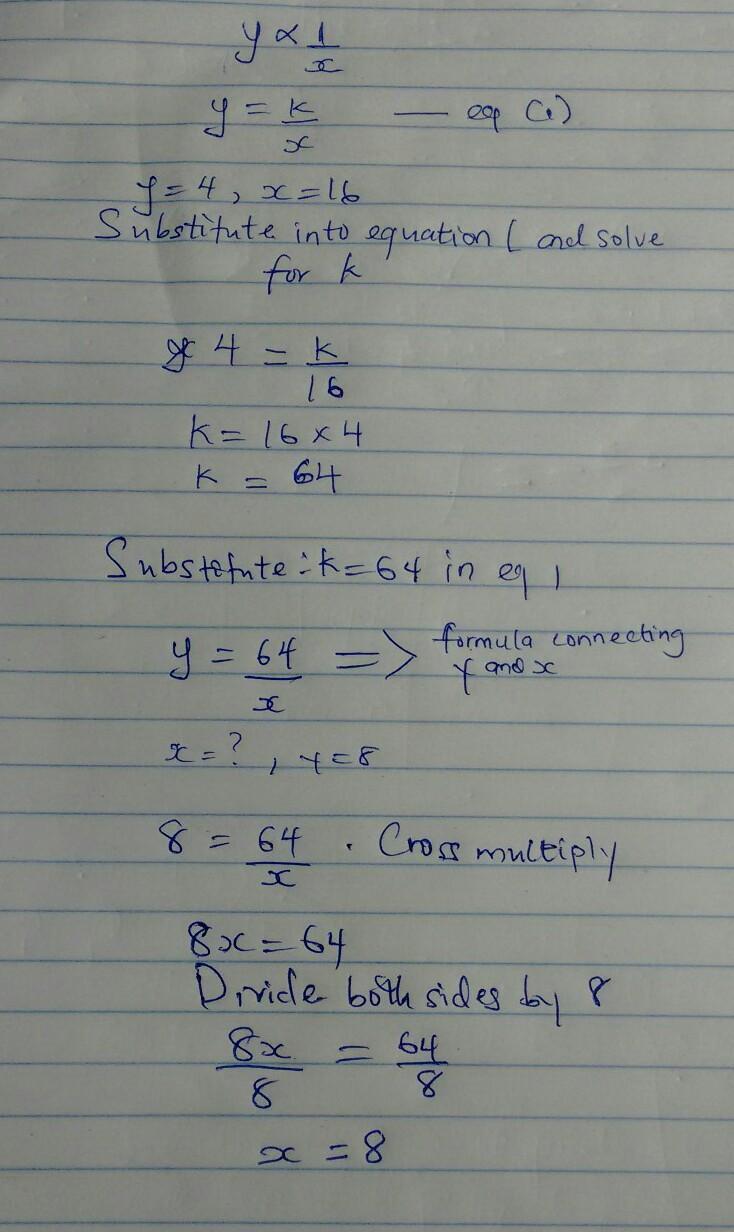 y ∝ 1/x
y = k/x — eq (1)
y = 4, x = 16
Substitute into equation 1 and solve
for k
4 = k/16
k = 16 × 4
k = 64
Substitute : k = 64 in eq 1
y = 64/x => formula connecting
y and x
x = ?, y = 8
8 = 64/x . Cross multiply
8x = 64
Divide both sides by 8
8x/8 = 64/8
x = 8